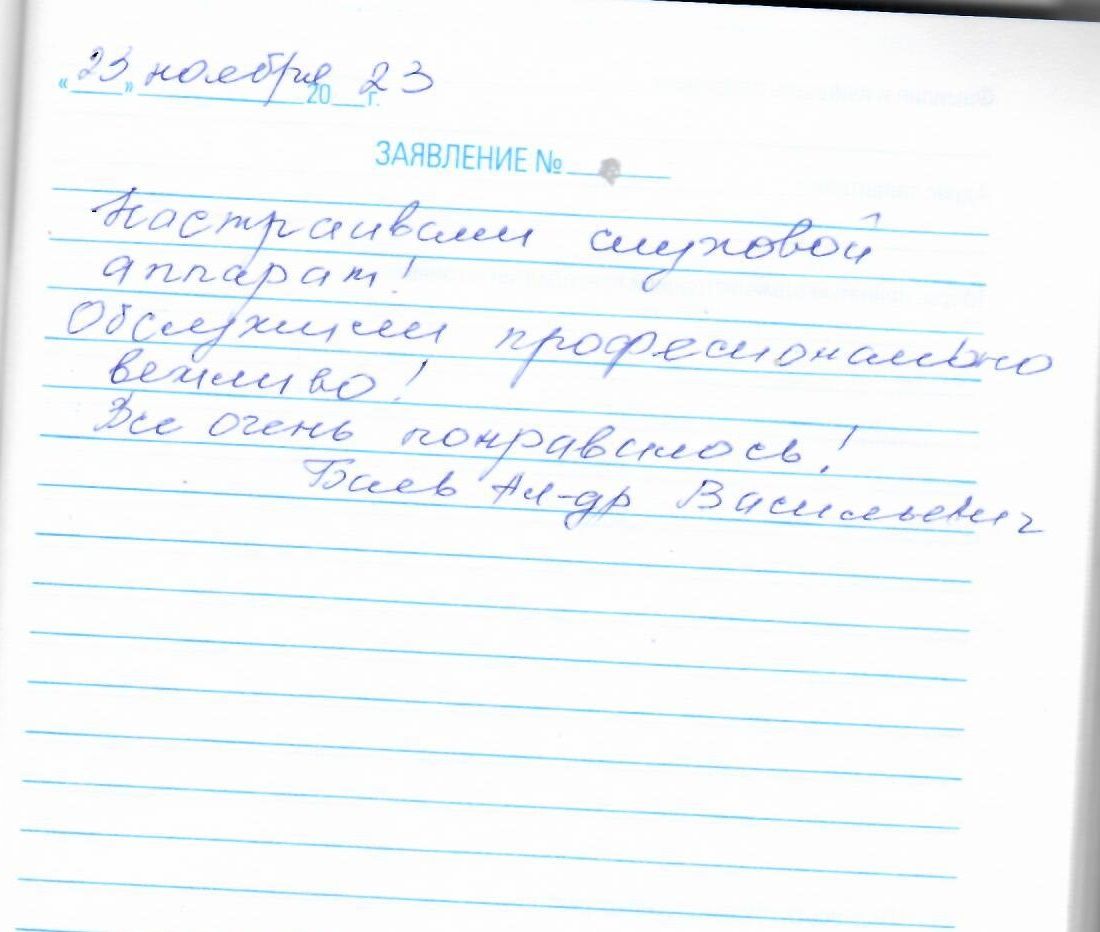 «23» ноября 20__г. 23
ЗАЯВЛЕНИЕ № ___
Настраивали слуховой
аппарат!
Обслужили професионально
вежливо!
Все очень понравилось!
Баев Ал-др Васильевич